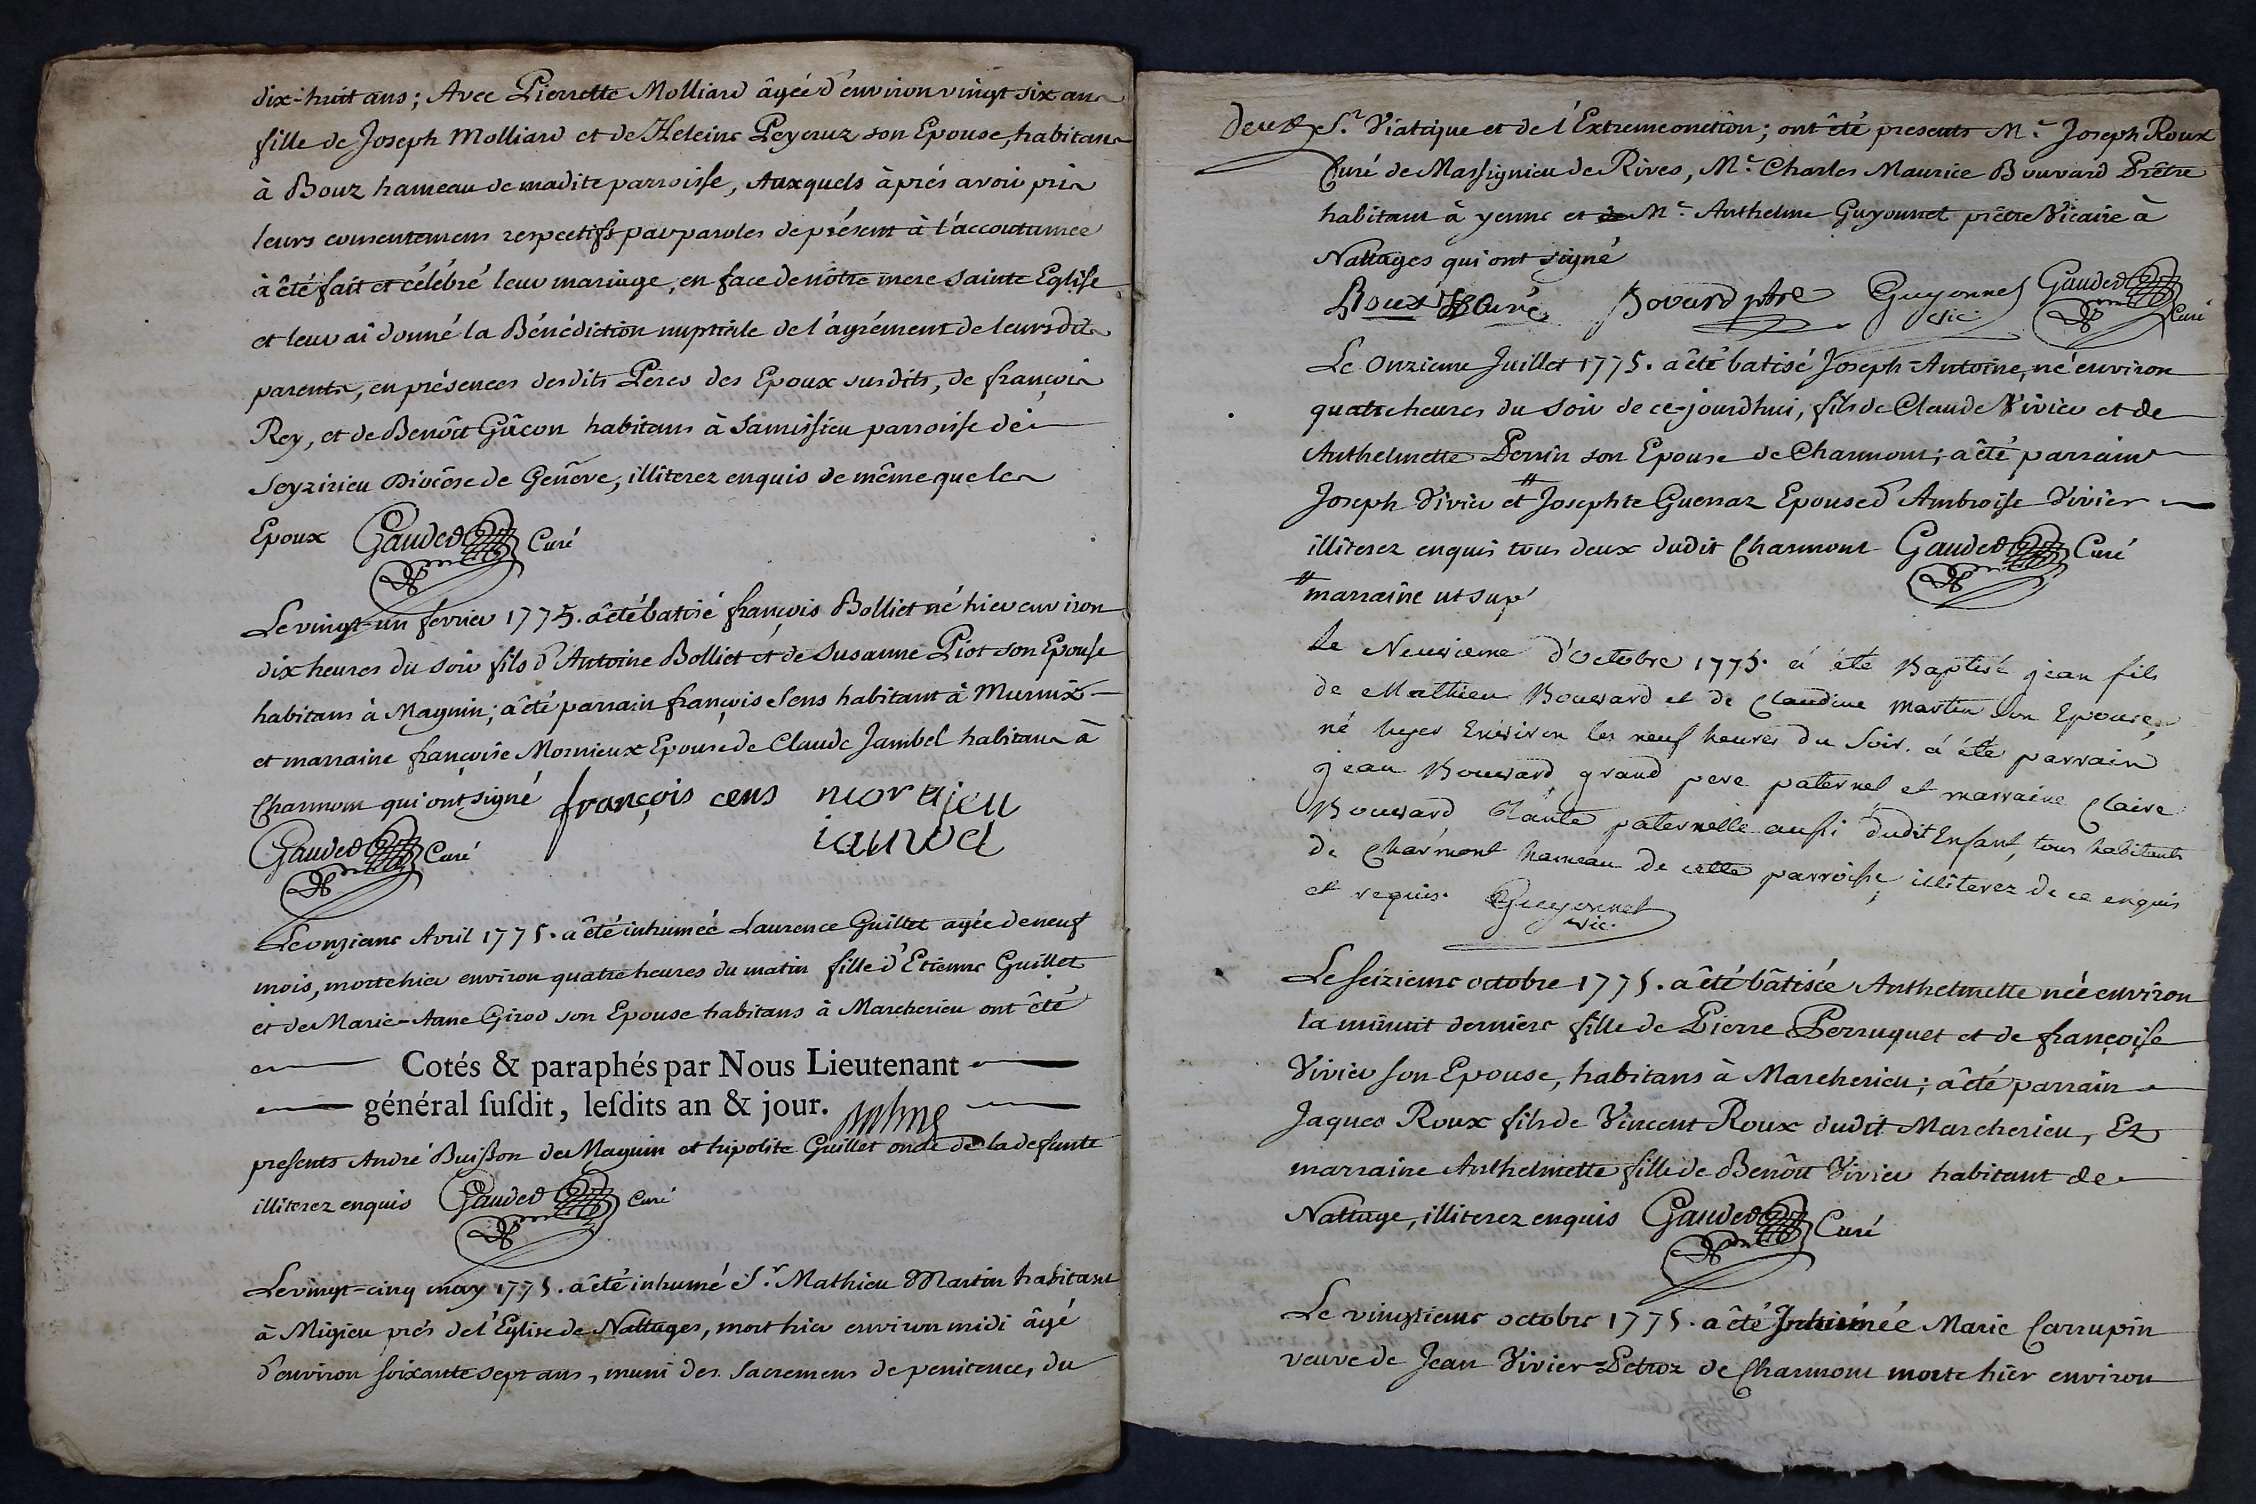 dix-huit ans; Avec Pierrette Molliard âgée d'environ vingt six ans
fille de Joseph Molliard et de Heleine Peycruz son Epouse, habitans
à Bouz hameau de madite parroisse, Auxquels àprés avoir pris
leurs consentemens respectifs par paroles de présent à l'accoutumée
à êté fait et célébré leur mariage, en face de nôtre mere sainte Eglise
et leur ai donné la Bénédiction nuptiale de l'agrément de leursdits
parents, en présences desdits Peres des Epoux susdits, de françois
Rey, et de Benôit Gâcon habitans à Samissieu parroisse de
Seyzirieu Diocêse de Genêve, illiterez enquis de même que les
Epoux Gaudet Curé
Le vingt-un février 1775. a êté batisé françois Bolliet né hier environ
dix heures du soir fils d'Antoine Bolliet et de Susanne Piot son Epouse
habitans à Magnin; a êté parrain françois Sens habitant à Murnix
et marraine françoise Mornieux Epouse de Claude Jambel habitans à
Charmont qui ont signé françois cens mornieu
Gaudet Curé
Le onzieme Avril 1775. a êté inhumée Laurence Guillet agée de neuf
mois, morte hier environ quatre heures du matin fille d'Etienne Guillet
et de Marie-Anne Girod son Epouse habitans à Marcherieu ont êté
Cotés & paraphés par Nous Lieutenant
général ſuſdit, leſdits an & jour.
presents André Buisson de Magnin et hipolite Guillet oncle de la defunte
illiterez enquis Gaudet Curé
Le vingt-cinq may 1775. a êté inhumé Sr. Mathieu Martin habitant
à Migieu prés de l'Eglise de Nattages, mort hier environ midi âgé
d'environ soixante sept ans, muni des Sacremens de penitence, du
Deux St. Viatique et de l'Extremeonction; ont êté presents Mre. Joseph Roux
Curé de Massignieu de Rives, Mre. Charles Maurice Bouvard Prêtre
habitant à yenne et de Mre. Anthelme Guyonnet prêtre Vicaire à
Nattages qui ont signé
Roux Curé Bovard ptre Guyonnet vic. Gaudet Curé
Le Onzieme Juillet 1775. a êté batisé Joseph-Antoine, né environ
quatre heures du soir de ce-jourdhui, fils de Claude Vivier et de
Anthelmette Perrin son Epouse de Charmont; a êté parrain
Joseph Vivier et # Josephte Guerraz Epouse d'Ambroise Vivier
illiterez enquis tous deux dudit Charmont Gaudet Curé
# marraine ut supr
Le Neuvieme d'Octobre 1775. a été Baptisé jean fils
de Mathieu Bouvard et de Claudine Martin son Epouse,
né hyer Environ les neuf heures du Soir. a été parrain
jean Bouvard grand pere paternel et marraine Claire
Bouvard Tante paternelle aussi dudit Enfant, tous habitants
de Charmont hameau de cette parroisse illiterez de ce enquis
et requis. Guyonnet vic.
Le seizieme octobre 1775. a êté bâtisée Anthelmette née environ
la minuit derniere fille de Pierre Perruquet et de françoise
Vivier son Epouse, habitans à Marcherieu; a êté parrain
Jaques Roux fils de Vincent Roux dudit Marcherieu, Et
marraine Anthelmette fille de Benôit Vivier habitant de
Nattage, illiterez enquis Gaudet Curé
Le vingtieme octobre 1775. a êté Inhumée Marie Carrupin
veuve de Jean Vivier-Petroz de Charmont morte hier environ